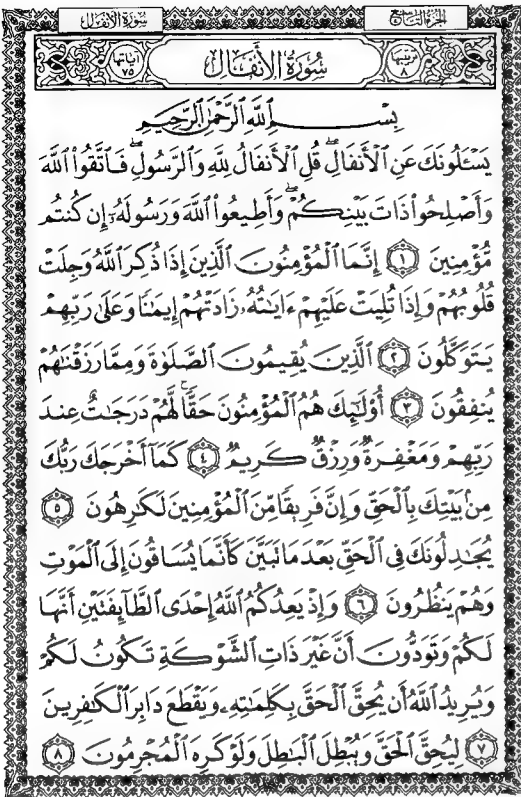 سُورَةُ الأَنفَال
الجُزءُ التَّاسِع
ترتيبها ٨
سُورَةُ الأَنفَالِ
آياتها ٧٥
بِسْمِ ٱللَّهِ ٱلرَّحْمَٰنِ ٱلرَّحِيمِ
يَسْـَٔلُونَكَ عَنِ ٱلْأَنفَالِۖ قُلِ ٱلْأَنفَالُ لِلَّهِ وَٱلرَّسُولِۖ فَٱتَّقُوا۟ ٱللَّهَ
وَأَصْلِحُوا۟ ذَاتَ بَيْنِكُمْۖ وَأَطِيعُوا۟ ٱللَّهَ وَرَسُولَهُۥٓ إِن كُنتُم
مُّؤْمِنِينَ ١ إِنَّمَا ٱلْمُؤْمِنُونَ ٱلَّذِينَ إِذَا ذُكِرَ ٱللَّهُ وَجِلَتْ
قُلُوبُهُمْ وَإِذَا تُلِيَتْ عَلَيْهِمْ ءَايَٰتُهُۥ زَادَتْهُمْ إِيمَٰنًا وَعَلَىٰ رَبِّهِمْ
يَتَوَكَّلُونَ ٢ ٱلَّذِينَ يُقِيمُونَ ٱلصَّلَوٰةَ وَمِمَّا رَزَقْنَٰهُمْ
يُنفِقُونَ ٣ أُو۟لَٰٓئِكَ هُمُ ٱلْمُؤْمِنُونَ حَقًّاۚ لَّهُمْ دَرَجَٰتٌ عِندَ
رَبِّهِمْ وَمَغْفِرَةٌ وَرِزْقٌ كَرِيمٌ ٤ كَمَآ أَخْرَجَكَ رَبُّكَ
مِنۢ بَيْتِكَ بِٱلْحَقِّ وَإِنَّ فَرِيقًا مِّنَ ٱلْمُؤْمِنِينَ لَكَٰرِهُونَ ٥
يُجَٰدِلُونَكَ فِى ٱلْحَقِّ بَعْدَ مَا تَبَيَّنَ كَأَنَّمَا يُسَاقُونَ إِلَى ٱلْمَوْتِ
وَهُمْ يَنظُرُونَ ٦ وَإِذْ يَعِدُكُمُ ٱللَّهُ إِحْدَى ٱلطَّآئِفَتَيْنِ أَنَّهَا
لَكُمْ وَتَوَدُّونَ أَنَّ غَيْرَ ذَاتِ ٱلشَّوْكَةِ تَكُونُ لَكُمْ
وَيُرِيدُ ٱللَّهُ أَن يُحِقَّ ٱلْحَقَّ بِكَلِمَٰتِهِۦ وَيَقْطَعَ دَابِرَ ٱلْكَٰفِرِينَ
٧ لِيُحِقَّ ٱلْحَقَّ وَيُبْطِلَ ٱلْبَٰطِلَ وَلَوْ كَرِهَ ٱلْمُجْرِمُونَ ٨